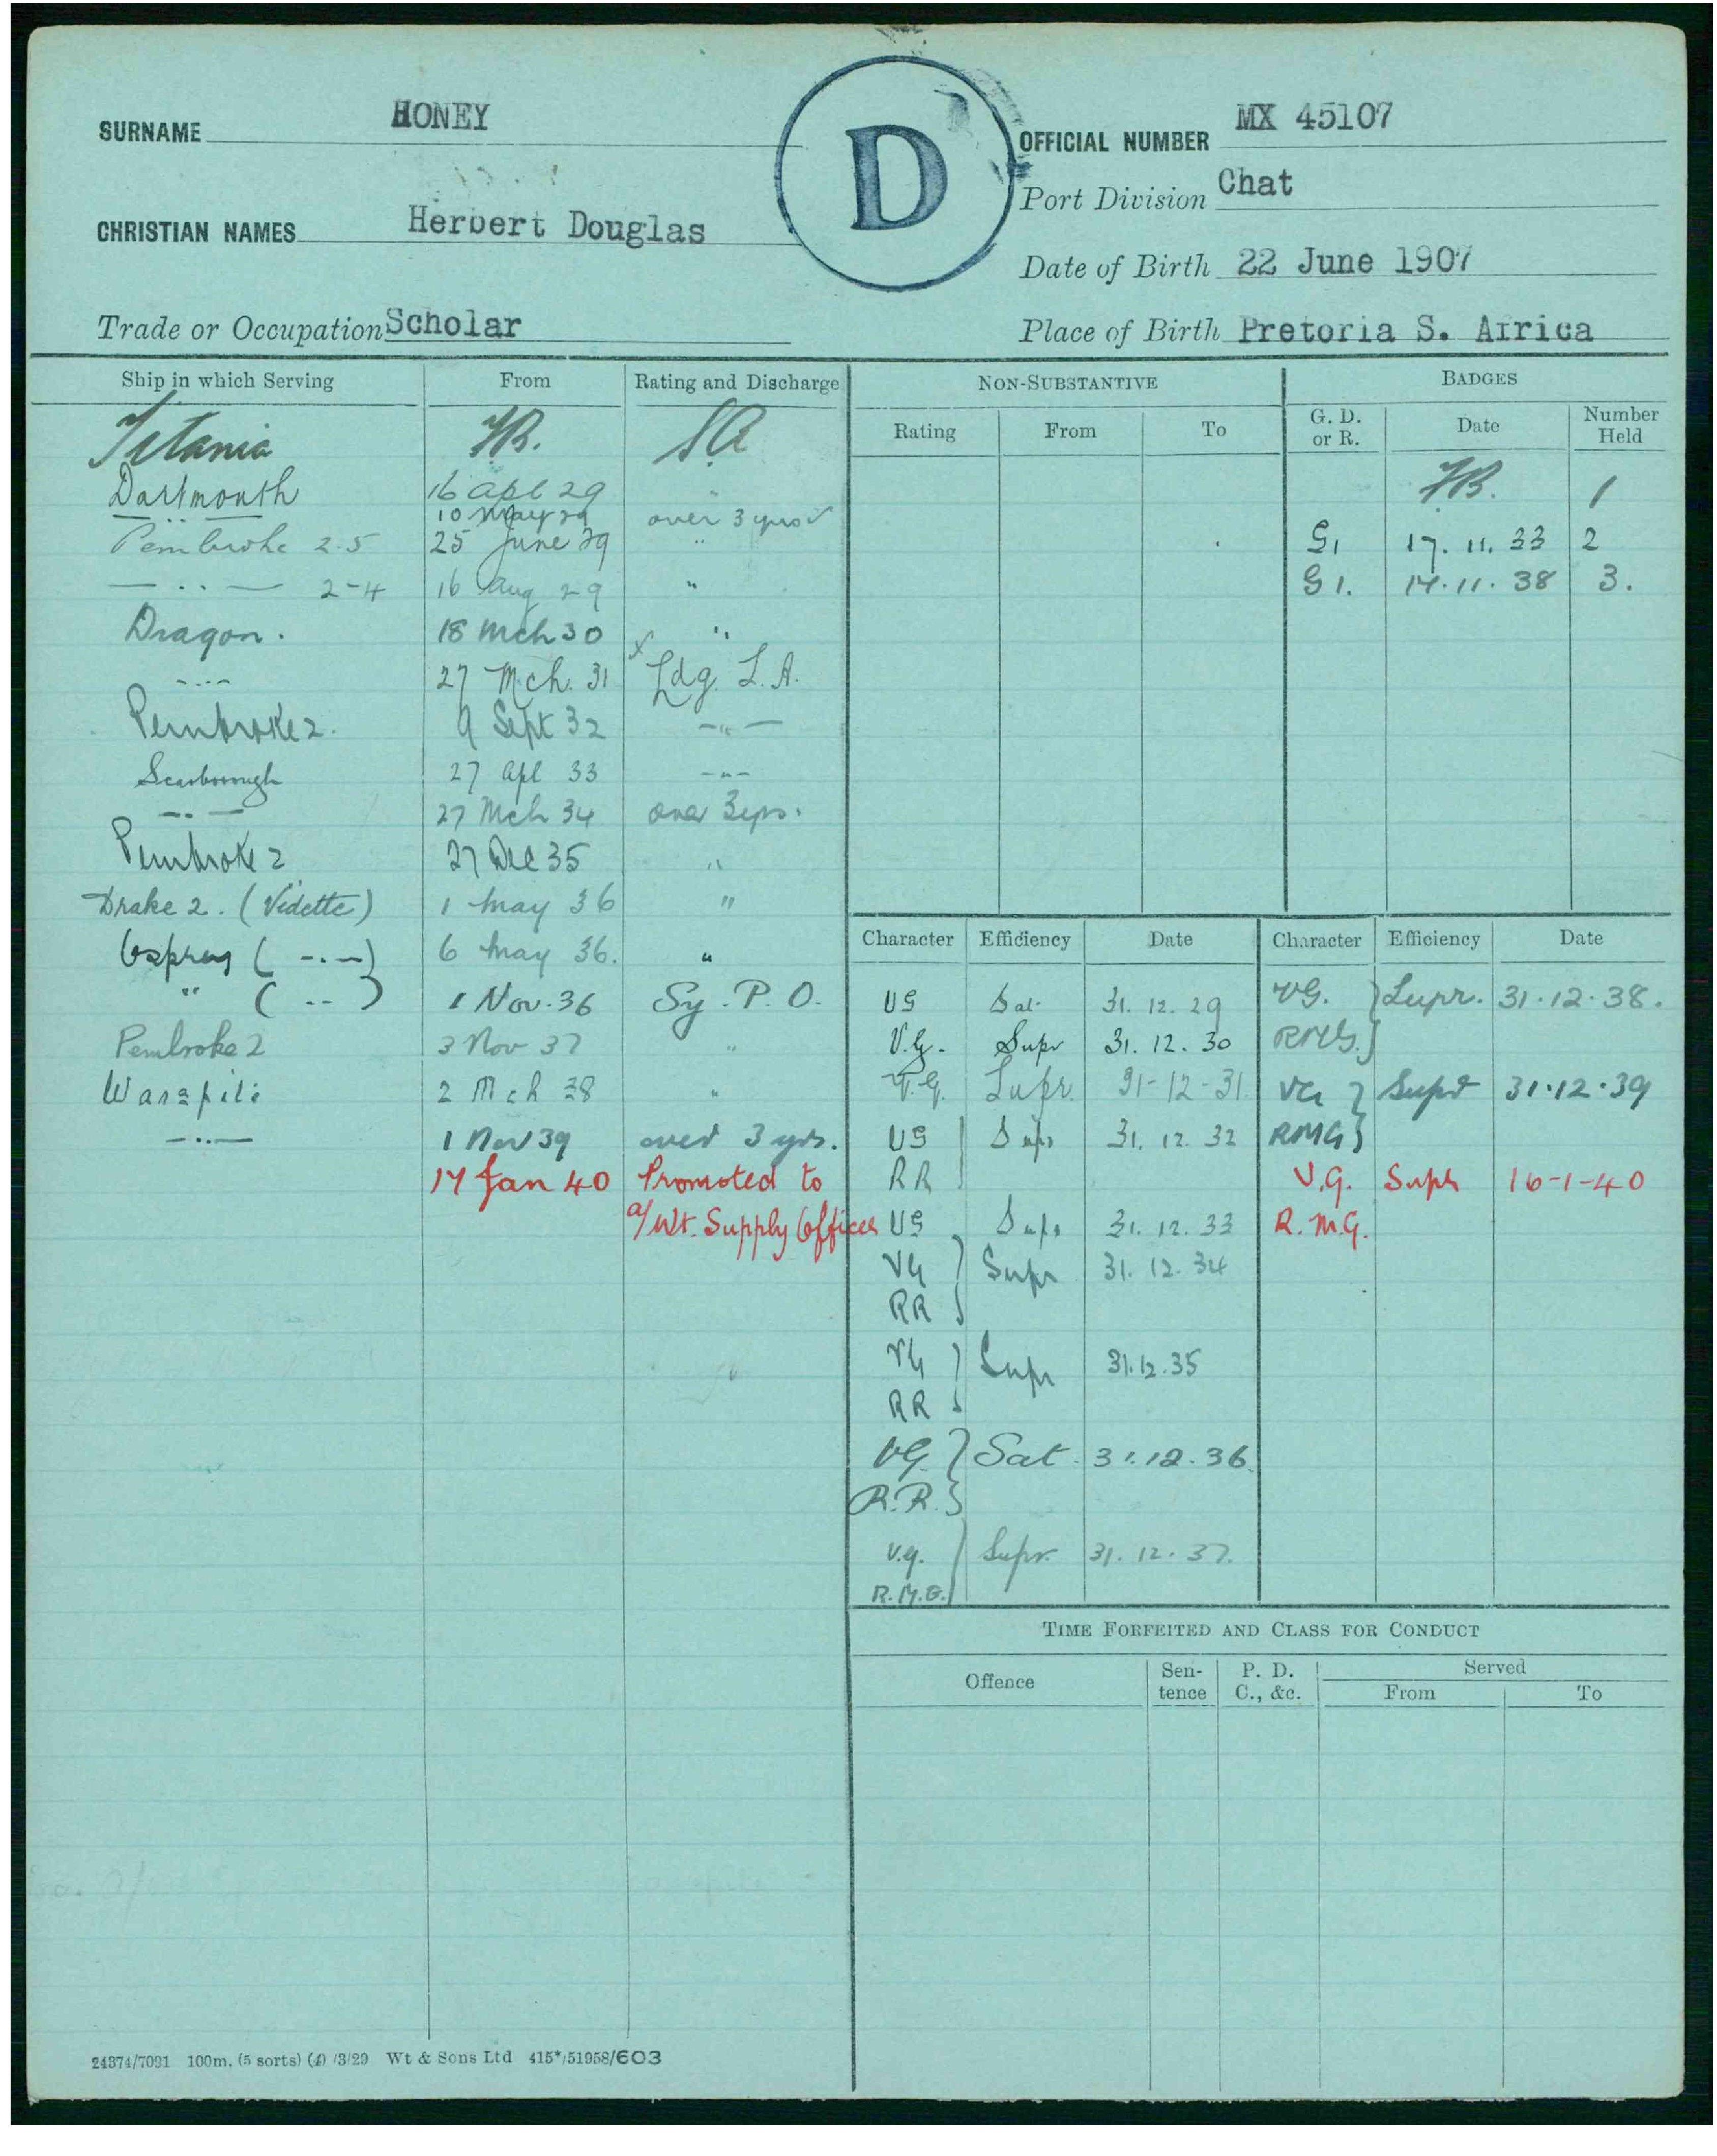 SURNAME HONEY
D
OFFICIAL NUMBER MX 45107
Port Division Chat
CHRISTIAN NAMES Herbert Douglas
Date of Birth 22 June 1907
Trade or Occupation Scholar
Place of Birth Pretoria S. Africa
Ship in which Serving From Rating and Discharge
Titania SA
Dartmouth 16 Apl 29 "
10 May 29 over 3 yrs
Pembroke 2.5 25 June 29 "
— " — 2-4 16 Aug 29 "
Dragon. 18 Mch 30 "
-"- 27 Mch. 31 x Ldg. S.A.
Pembroke 2. 9 Sept 32 -"-
Scarborough 27 Apl 33 -"-
-"- 27 Mch 34 over 3 yrs.
Pembroke 2 27 Dec 35 "
Drake 2. (Vidette) 1 May 36 "
Osprey (-"-) 6 May 36. "
" (-"-) 1 Nov. 36 Sy. P.O.
Pembroke 2 3 Nov 37 "
Warspite 2 Mch 38 "
-"- 1 Nov 39 over 3 yrs.
17 Jan 40 Promoted to
a/Wt. Supply Officer
NON-SUBSTANTIVE
Rating From To
BADGES
G. D. or R. Date Number Held
1
G1 17. 11. 33 2
G1. 14. 11. 38 3.
Character Efficiency Date
VG Sat. 31. 12. 29
V.G. Supr 31. 12. 30
V.G. Supr. 31-12-31
VG Supr 31. 12. 32
RR
VG Supr 31. 12. 33
VG Supr 31. 12. 34
RR
VG Supr 31.12.35
RR
VG. Sat. 31.12.36.
R.R.
V.G. Supr. 31. 12. 37.
R.M.G.
Character Efficiency Date
VG. Supr. 31.12.38.
RMG.
VG Supr 31.12.39
RMG
V.G. Supr 16-1-40
R.M.G.
TIME FORFEITED AND CLASS FOR CONDUCT
Offence Sentence P. D. C., &c. Served
From To
24374/7091 100m. (5 sorts) (4) /3/29 Wt & Sons Ltd 415*/51958/603